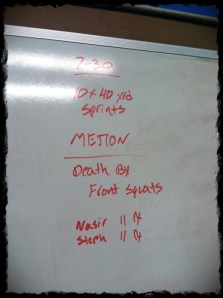 7-30
10x40 yrd
Sprints
METCON
Death By
Front Squats
Nasir 11
Steph 11